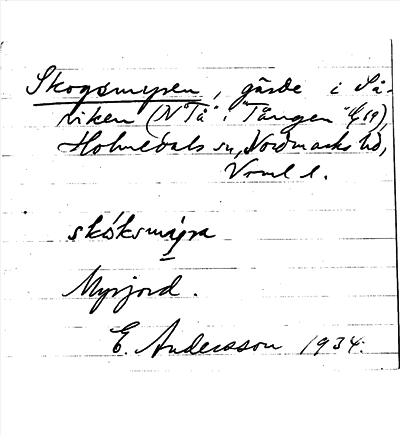 Skogsmyren, gärde i Så-
riken (N Tå i "Tången" 1/4 19),
Holmedals sn, Nordmarks hd,
Vrml l.
skóksmýra
Myrjord.
E. Andersson 1934.